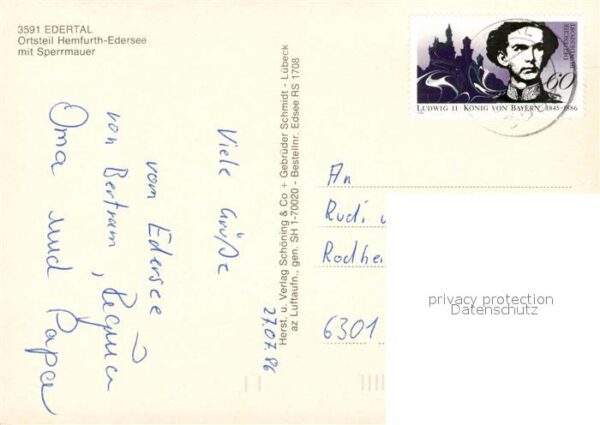 3591 EDERTAL
Ortsteil Hemfurth-Edersee
mit Sperrmauer
Viele Grüße
vom Edersee
von Bertram, Regina
Oma und Papa
27.07.86
Herst. u. Verlag Schöning & Co + Gebrüder Schmidt - Lübeck
az Luftaufn., gen. SH 1-70020 - Bestellnr. Edsee RS 1708
60
LUDWIG II · KÖNIG VON BAYERN 1845-1886
An
Rudi
6301
privacy protection
Datenschutz